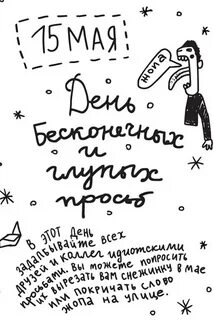 15 МАЯ
жопа
День
Бесконечных
и
глупых
просьб
В ЭТОТ ДЕНЬ
ЗАДАЛБЫВАЙТЕ ВСЕХ
ДРУЗЕЙ И КОЛЛЕГ ИДИОТСКИМИ
ПРОСЬБАМИ. ВЫ МОЖЕТЕ ПОПРОСИТЬ
ИХ ВЫРЕЗАТЬ ВАМ СНЕЖИНКУ В МАЕ
ИЛИ ПОКРИЧАТЬ СЛОВО
ЖОПА НА УЛИЦЕ.